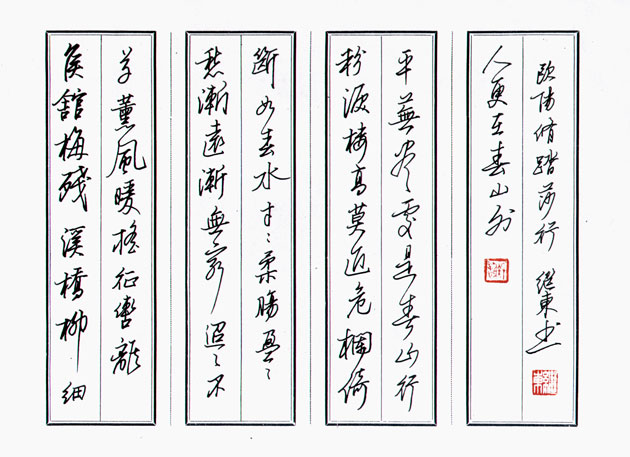 侯舘梅殘溪橋柳細
草薰風暖搖征轡離
愁漸遠漸無窮迢〻不
斷如春水寸〻柔腸盈〻
粉淚樓高莫近危欄倚
平蕪尽處是春山行
人更在春山外
欧陽脩踏莎行 継東书